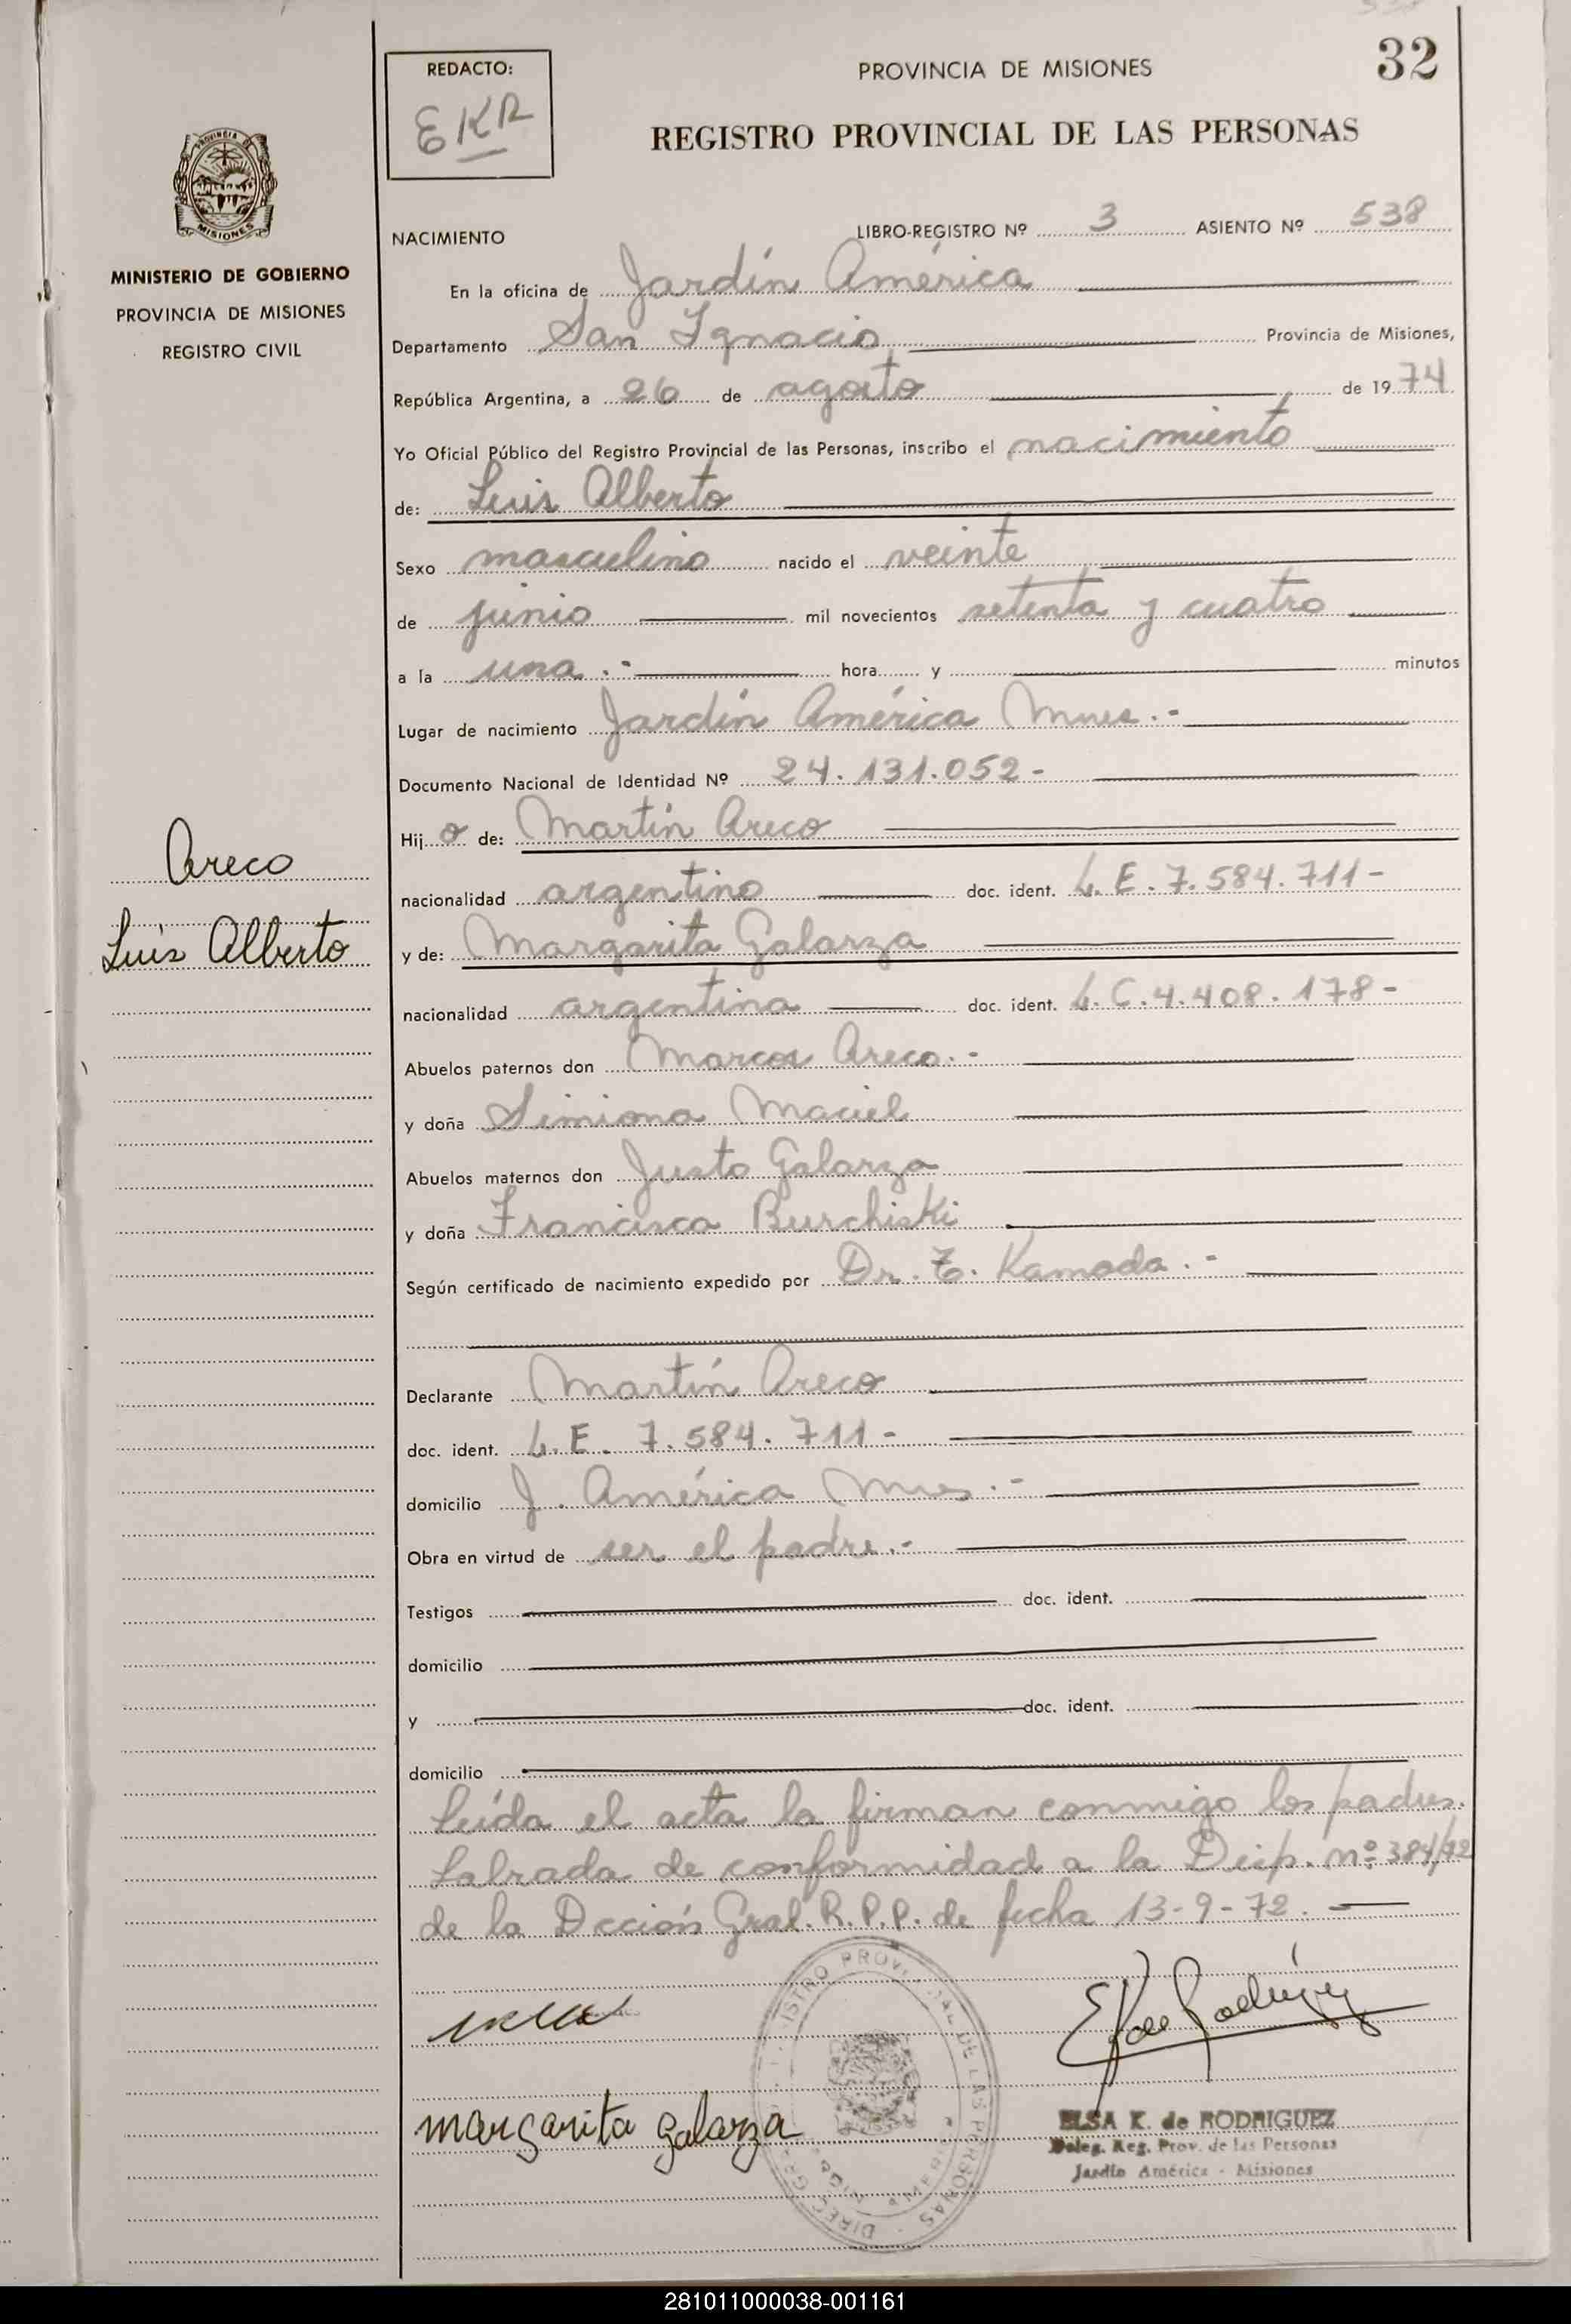 32
REDACTO:
EKR
PROVINCIA DE MISIONES
REGISTRO PROVINCIAL DE LAS PERSONAS
MISIONES
MINISTERIO DE GOBIERNO
PROVINCIA DE MISIONES
REGISTRO CIVIL
NACIMIENTO LIBRO-REGISTRO Nº 3 ASIENTO Nº 538
En la oficina de Jardín América
Departamento San Ignacio Provincia de Misiones,
República Argentina, a 26 de agosto de 1974
Yo Oficial Público del Registro Provincial de las Personas, inscribo el nacimiento
de: Luis Alberto
Sexo masculino nacido el veinte
de junio mil novecientos setenta y cuatro
a la una.- hora y minutos
Lugar de nacimiento Jardín América Mnes.-
Documento Nacional de Identidad Nº 24.131.052-
Hijo de: Martín Areco
nacionalidad argentino doc. ident. L.E. 7.584.711-
y de: Margarita Galarza
nacionalidad argentina doc. ident. L.C. 4.408.178-
Abuelos paternos don Marcos Areco.-
y doña Simiona Maciel
Abuelos maternos don Justo Galarza
y doña Francisca Burchiski
Según certificado de nacimiento expedido por Dr. T. Kamada.-
Declarante Martín Areco
doc. ident. L.E. 7.584.711-
domicilio J. América Mnes.-
Obra en virtud de ser el padre.-
Testigos doc. ident.
domicilio
y doc. ident.
domicilio
Leída el acta la firman conmigo los padres.
Labrada de conformidad a la Disp. nº 384/72
de la Dcción Gral. R.P.P. de fecha 13-9-72.
Areco
Luis Alberto
margarita galarza
EK de Rodríguez
ELSA K. de RODRIGUEZ
Deleg. Reg. Prov. de las Personas
Jardín América - Misiones
281011000038-001161